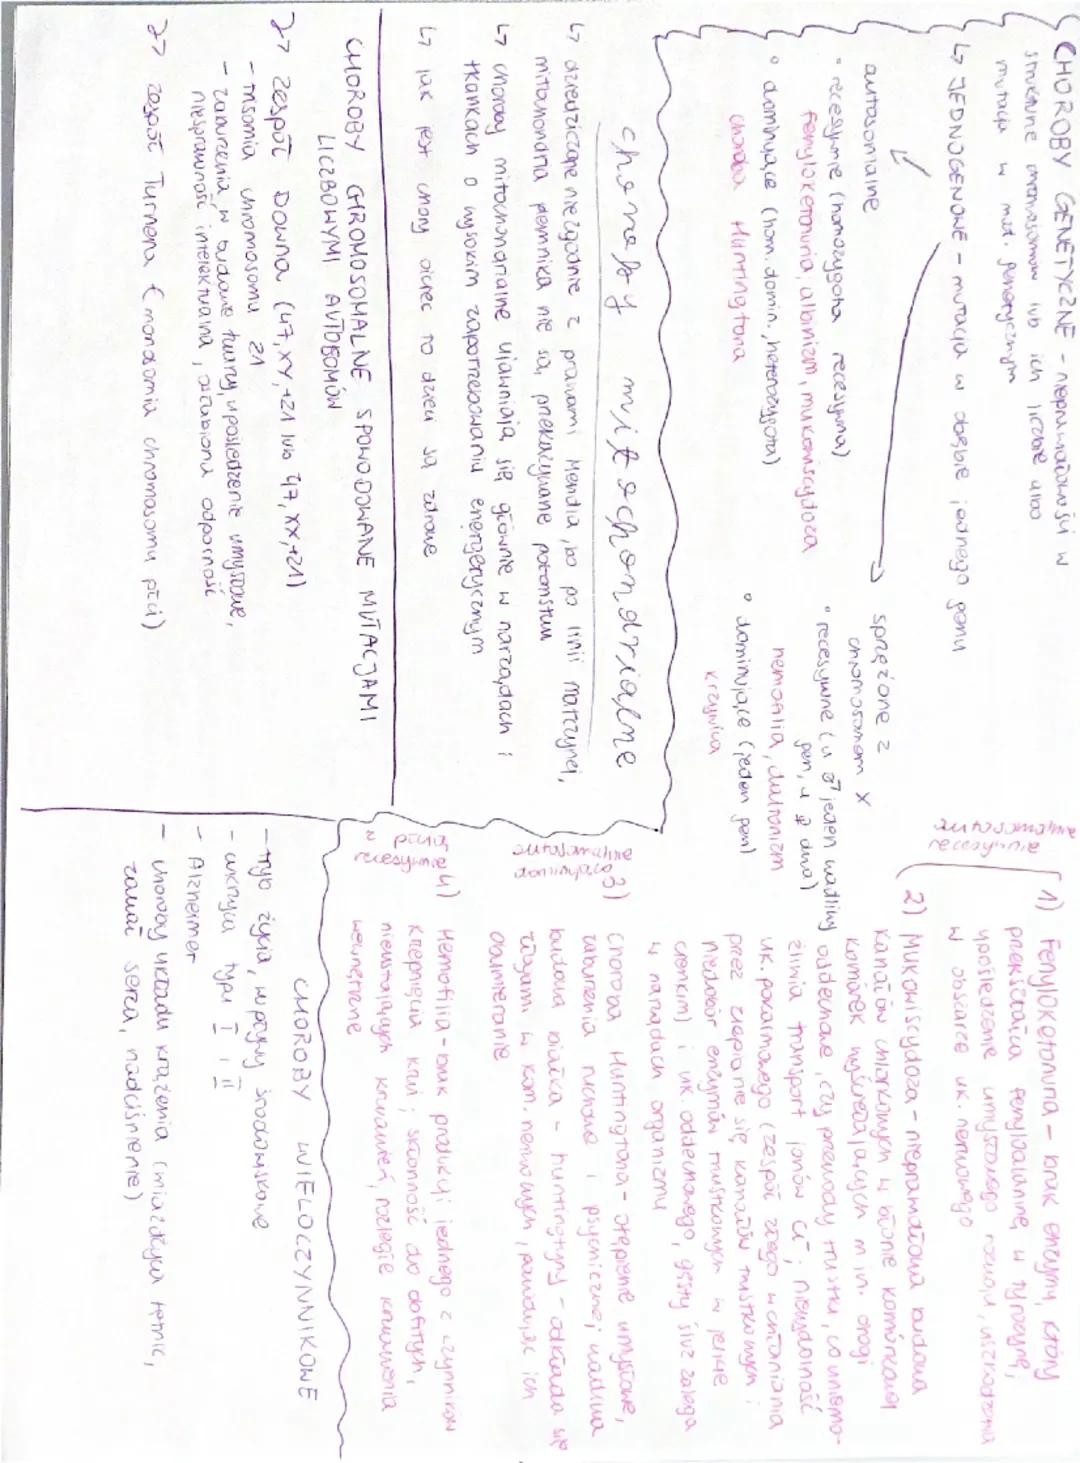 CHOROBY GENETYCZNE - nieprawidłowości w
strukturze chromosomów lub ich liczbie albo
mutacja w mat. genetycznym
↳ JEDNOGENOWE - mutacja w obrębie jednego genu
autosomalne
• recesywne (homozygota recesywna)
fenyloketonuria, albinizm, mukowiscydoza
• dominujące (hom. domin., heterozygota)
choroba Huntingtona
sprzężone z
chromosomem X
• recesywne (u ♂ jeden wadliwy
gen, u ♀ dwa)
hemofilia, daltonizm
• dominujące (jeden gen)
krzywica
choroby mitochondrialne
↳ dziedziczone niezgodnie z prawami Mendla, bo po linii matczynej,
mitochondria plemnika nie są przekazywane potomstwu
↳ choroby mitochondrialne ujawniają się głównie w narządach i
tkankach o wysokim zapotrzebowaniu energetycznym
↳ jak jest chory ojciec to dzieci są zdrowe
CHOROBY CHROMOSOMALNE SPOWODOWANE MUTACJAMI
LICZBOWYMI AUTOSOMÓW
zespół Downa (47,XY,+21 lub 47,XX,+21)
- trisomia chromosomu 21
- zaburzenia w budowie twarzy, upośledzenie umysłowe,
niesprawność intelektualna, osłabiona odporność
zespół Turnera (monosomia chromosomu płci)
autosomalnie
recesywnie
1) Fenyloketonuria - brak enzymu, który
przekształca fenyloalaninę w tyrozynę;
upośledzenie umysłowego rozwoju, uszkodzenia
w obszarze uk. nerwowego
2) Mukowiscydoza - nieprawidłowa budowa
kanałów chlorkowych w błonie komórkowej
komórek wyścielających m.in. drogi
oddechowe, czy przewody trzustki, co uniemo-
żliwia transport jonów Cl⁻; niewydolność
uk. pokarmowego (zespół złego wchłaniania
przez zlepianie się kanałów trzustkowych i
niedobór enzymów trzustkowych w jelicie
cienkim) i uk. oddechowego, gęsty śluz zalega
w narządach organizmu
autosomalnie
dominująco
3) choroba Huntingtona - otępienie umysłowe,
zaburzenia ruchowe i psychiczne; wadliwa
budowa białka - huntingtyny - odkłada się
złogami w kom. nerwowych, powodując ich
obumieranie
z płcią
recesywnie
4) Hemofilia - brak produkcji jednego z czynników
krzepnięcia krwi; skłonność do obfitych,
nieustających krwawień, rozległe krwawienia
wewnętrzne
CHOROBY WIELOCZYNNIKOWE
- tryb życia, wpływy środowiskowe
- cukrzyca typu I i II
- Alzheimer
- choroby układu krążenia (miażdżyca tętnic,
zawał serca, nadciśnienie)